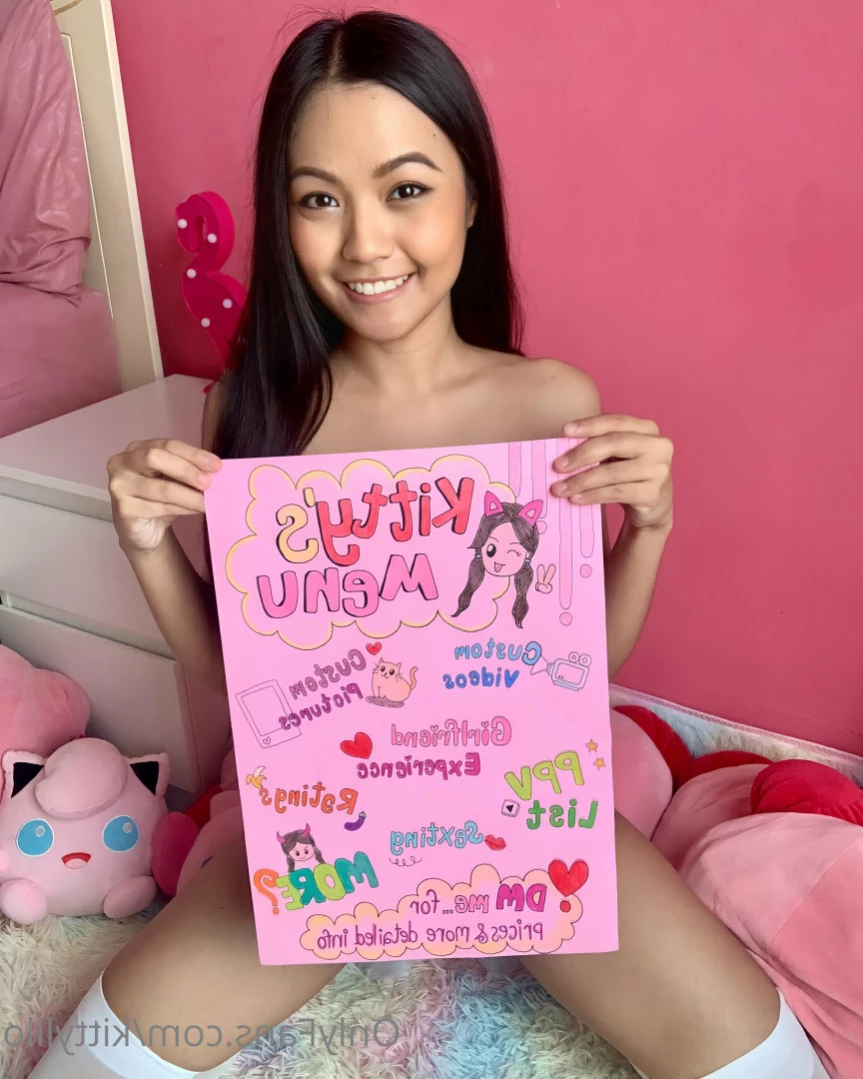 Kitty's
Menu
Custom
Videos
Custom
Pictures
Girlfriend
Experience
PPV
List
Ratings
Sexting
MORE?
DM me... for
prices & more detailed info
OnlyFans.com/kittylilo